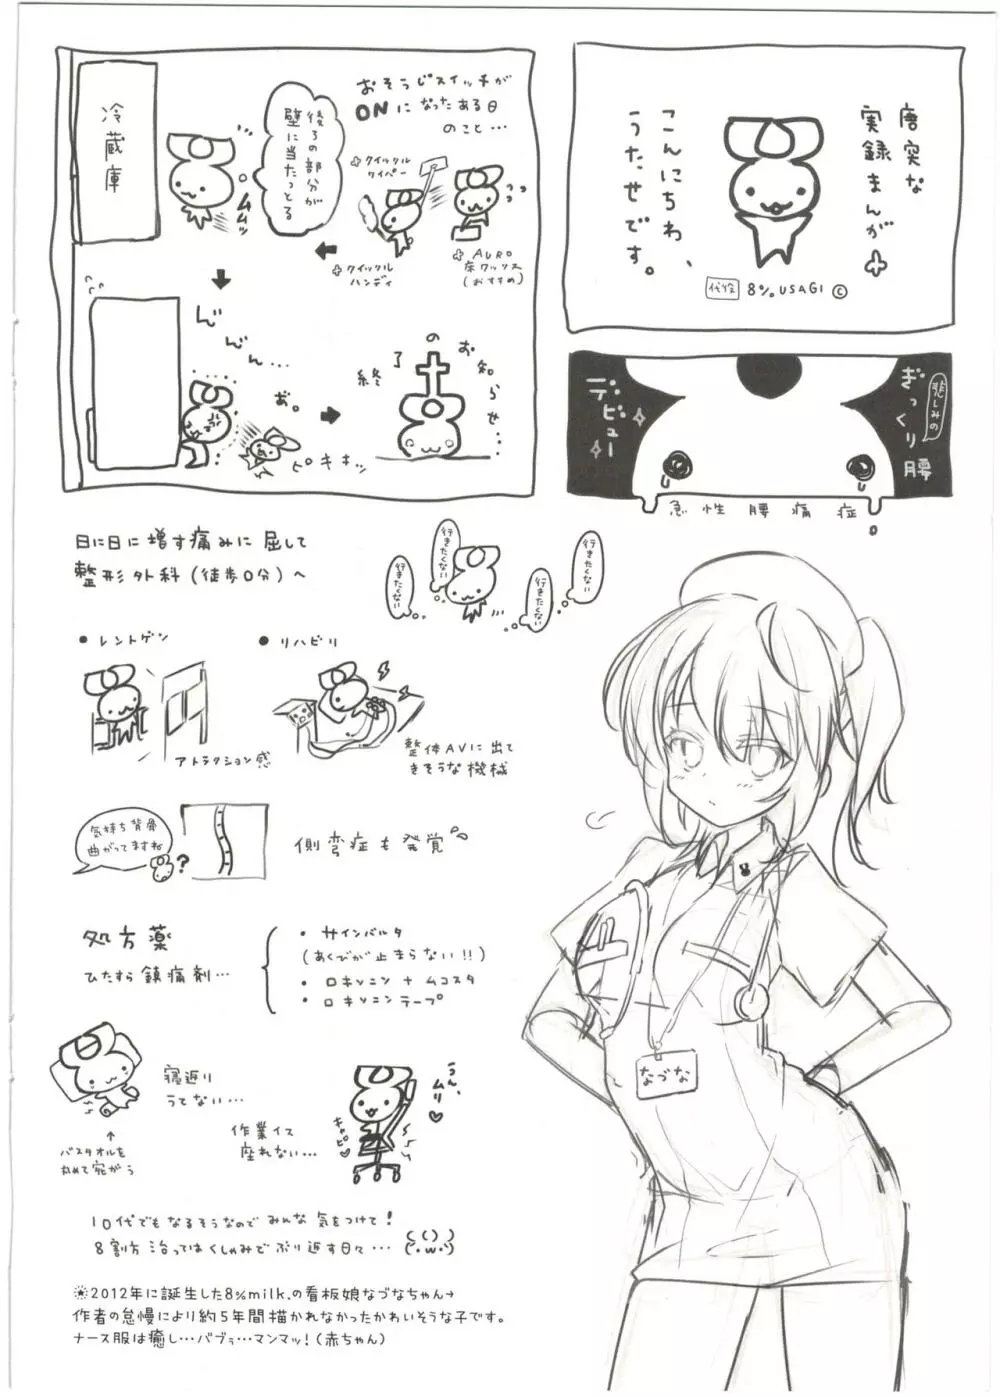 唐突な
実録まんが
こんにちわ、
うたせです。
代役 8% USAGI ©
おそうじスイッチが
ONになったある日
のこと…
クイックル
ワイパー
AURO
床ワックス
(おすすめ)
クイックル
ハンディ
後ろの部分が
壁に当たっとる
ムムッ
冷蔵庫
ん゛
ん゛ん…
あ。
ピキホッ
終了のお知らせ…
悲しみの
ぎっくり腰
デビュー
急性腰痛症
日に日に増す痛みに屈して
整形外科(徒歩0分)へ
行きたくない
行きたくない
行きたくない
行きたくない
● レントゲン
アトラクション感
● リハビリ
整体AVに出て
きそうな機械
気持ち背骨
曲がってますね
?
側弯症も発覚
処方薬
ひたすら鎮痛剤…
・サインバルタ
(あくびが止まらない!!)
・ロキソニン + ムコスタ
・ロキソニンテープ
寝返り
うてない…
↑
バスタオルを
丸めて宛がう
作業イス
座れない…
うん、
ムリ♡
キャピ♡
10代でもなるそうなのでみんな気をつけて!
8割方治ってはくしゃみでぶり返す日々…
※2012年に誕生した8%milk.の看板娘なづなちゃん→
作者の怠慢により約5年間描かれなかったかわいそうな子です。
ナース服は癒し…バブぅ…マンマッ!(赤ちゃん)
なづな